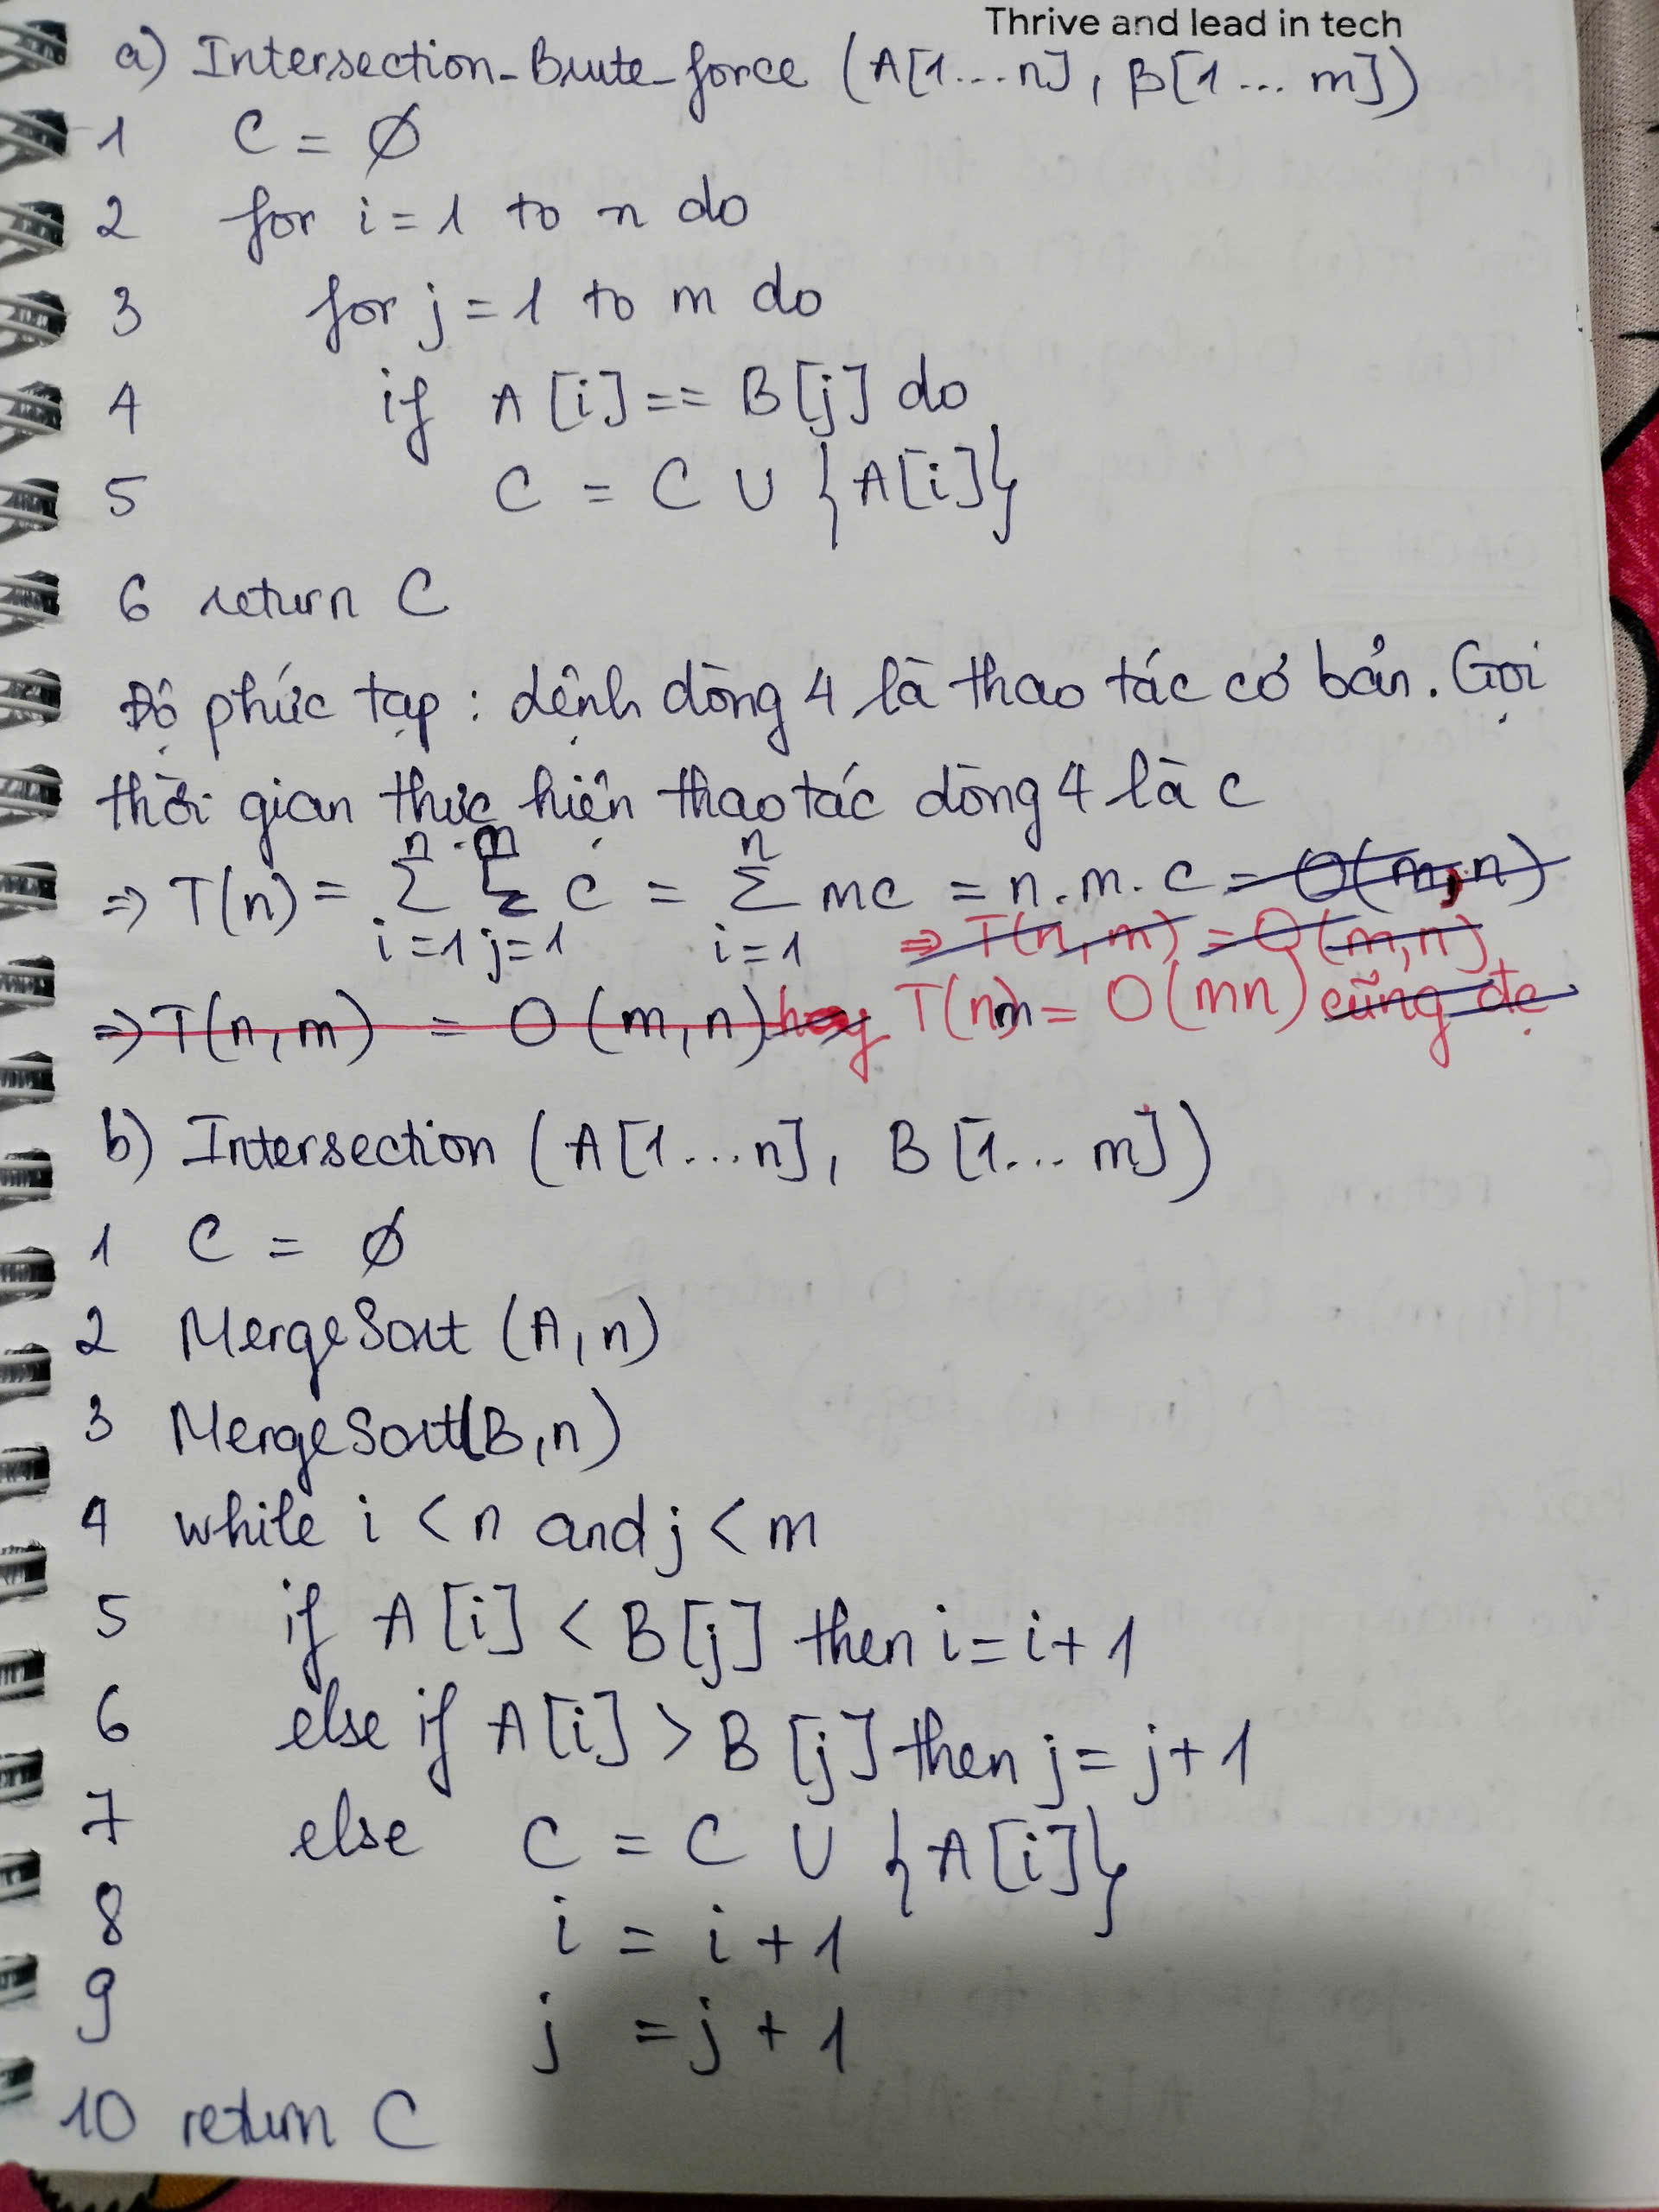 Thrive and lead in tech
a) Intersection-Brute-force (A[1...n], B[1... m])
1 C = Ø
2 for i = 1 to n do
3 for j = 1 to m do
4 if A[i] == B[j] do
5 C = C ∪ {A[i]}
6 return C
Độ phức tạp : lệnh dòng 4 là thao tác cơ bản. Gọi
thời gian thực hiện thao tác dòng 4 là c
=> T(n) = Σ_{i=1}^{n} Σ_{j=1}^{m} c = Σ_{i=1}^{n} mc = n.m.c = O(m,n)
=> T(n,m) = O(m,n)
=> T(n,m) = O(m,n) hay T(nm = O(mn) cũng đc
b) Intersection (A[1...n], B[1... m])
1 C = Ø
2 MergeSort (A,n)
3 MergeSort(B,n)
4 while i < n and j < m
5 if A[i] < B[j] then i = i + 1
6 else if A[i] > B[j] then j = j + 1
7 else C = C ∪ {A[i]}
8 i = i + 1
9 j = j + 1
10 return C